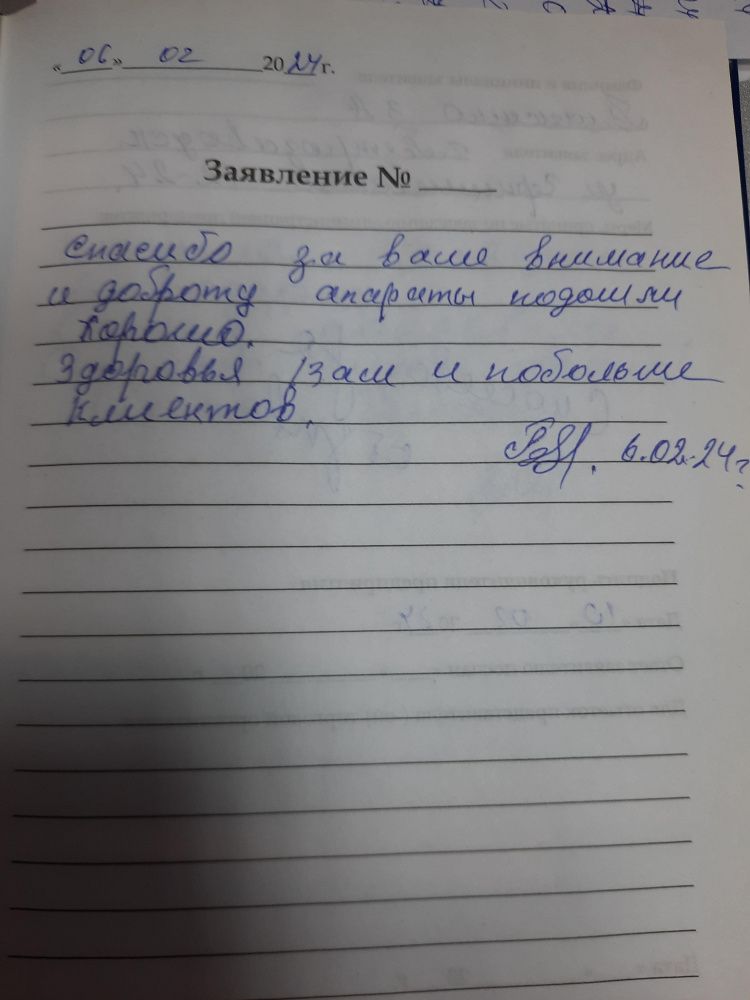 «06» 02 2024 г.
Заявление № ____
Спасибо за ваше внимание
и доброту апараты подошли
хорошо.
Здоровья вам и побольше
клиентов.
6.02.24г